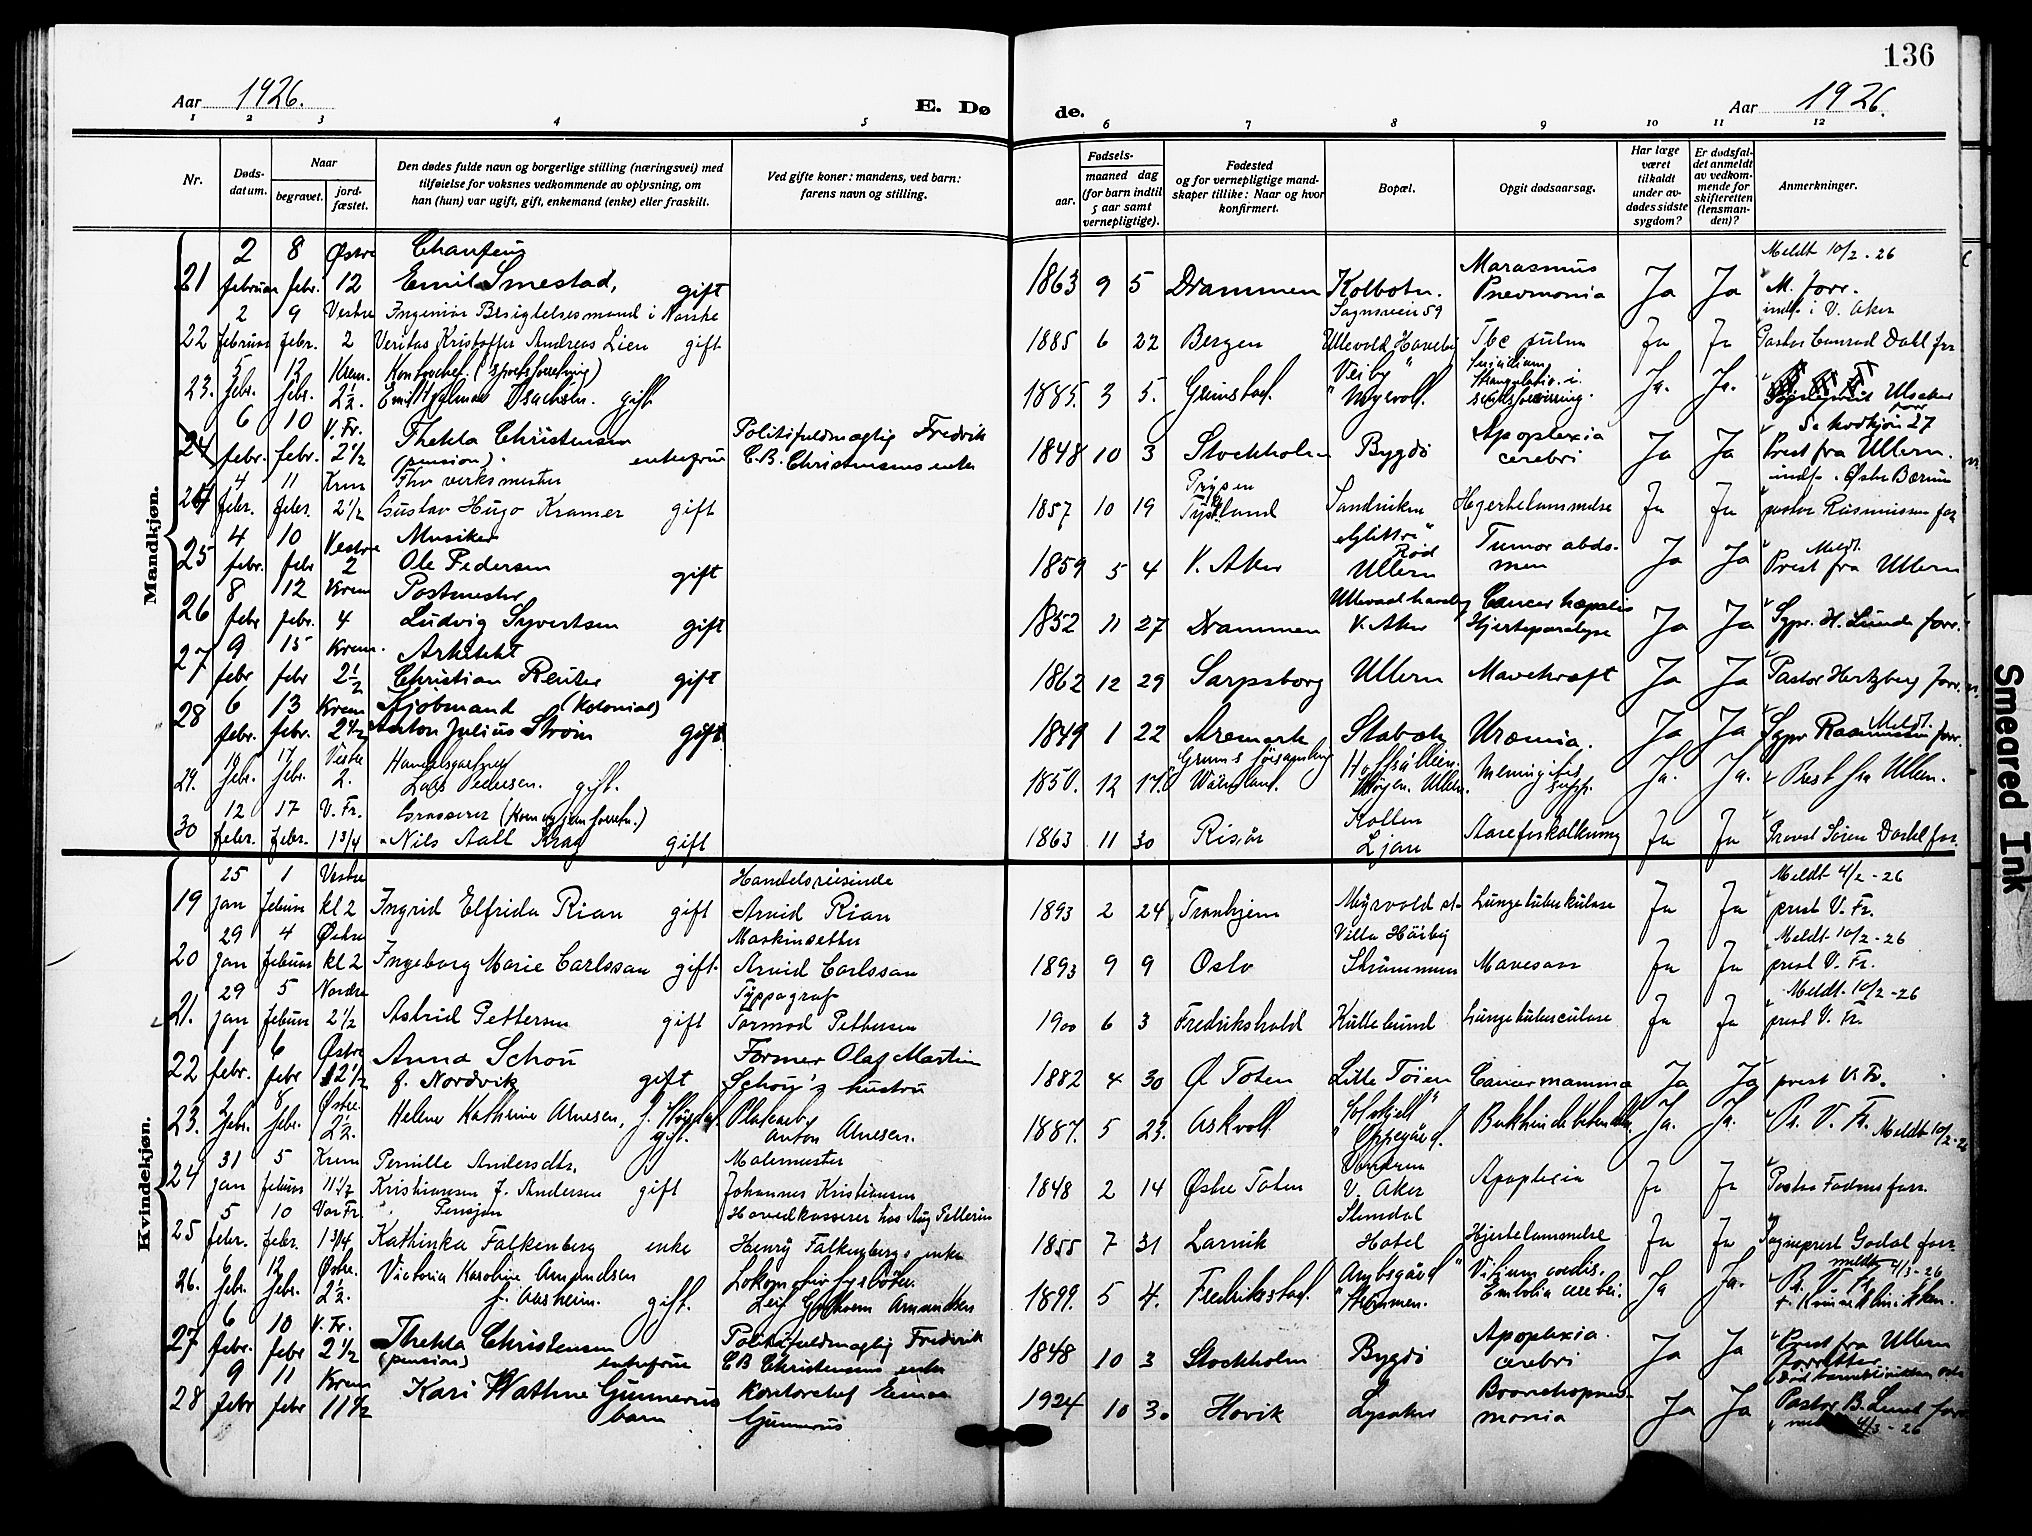 136
Aar 1926.
E. Dø
de.
Aar 1926.
1 2 3 4 5 6 7 8 9 10 11 12
Nr.
Døds-
datum.
Naar
begravet.
jord-
fæstet.
Den dødes fulde navn og borgerlige stilling (næringsvei) med
tilføielse for voksnes vedkommende av oplysning, om
han (hun) var ugift, gift, enkemand (enke) eller fraskilt.
Ved gifte koner: mandens, ved barn:
farens navn og stilling.
Fødsels-
aar.
maaned dag
(for barn indtil
5 aar samt
vernepligtige).
Fødested
og for vernepligtige mand-
skaper tillike: Naar og hvor
konfirmert.
Bopæl.
Opgit dødsaarsag.
Har læge
været
tilkaldt
under av-
dødes sidste
sygdom?
Er dødsfal-
det anmeldt
av vedkom-
mende for
skifteretten
(lensman-
den)?
Anmerkninger.
Mandkjøn.
2 8 Østre Chauffeur Marasmus Meldt 10/2-26
21 februar febr. 12 Emil Smestad, gift 1863 9 5 Drammen Kolbotn. Pneumonia Ja Ja M. forr.
2 9 Vestre Ingeniør Besigtelsesmand i Norske Sognsveien 59 indf. i V. Aker
22 februar febr. 2 Veritas Kristoffer Andreas Lien gift 1885 6 22 Bergen Ullevold Haveby Tbc pulm Ja Ja Pastor Conrad Dahl forr
5 12 Krem. Kontorchef. Suicidium
23. febr. febr. 2½. gift 1885. 3 5. Grimstad. Myrvoll. Strangulatio. Ja. Ja.
6 10 V. Fr. Se kvdkjøn 27
24 febr. febr. 2½ Thekla Christensen (pension). enkefrue Politifuldmægtig Fredrik C.B. Christensens enke 1848 10 3 Stockholm Bygdø Apoplexia cerebri Ja Ja Prest fra Ullern.
4 11 Krem Fhv verksmester indf. i Østre Bærum
24 febr. febr. 2½ Gustav Hugo Kramer gift 1857 10 19 Tyskland Sandviken Hjertelammelse Ja Ja pastor Rasmussen forr
4 10 Vestre Musiker Tumor abdo- Meldt.
25 febr. febr 2 Ole Pedersen gift 1859 5 4 V. Aker Ullern men Ja Ja Prest fra Ullern
8 12 Krem Postmester Ullevaal haveby Cancer hepatis
26 febr febr. 4 Ludvig Syvertsen gift 1852 11 27 Drammen V. Aker Hjerteparalyse Ja Ja Sypr. H. Lunde forr.
9 15 Krem. Arkitekt
27 febr febr 2½ Christian Reuter gift 1862 12 29 Sarpsborg Ullern Mavekræft Ja Ja Pastor Hertzberg forr.
6 13 Krem Kjøbmand (kolonial) Meldt.
28 febr. febr. 2½ Anton Julius Strøm gift 1849 1 22 Aremark Stabæk Uræmia. Ja Ja Sypr Rasmussen forr.
17 Vestre
29. febr. febr. 2. Lars Pedersen. gift. 1850. 12 17. Ullern. Meningitis supp. Ja. Ja. Prest fra Ullern.
12 17 V. Fr. Grosserer Kollen
30 febr. febr. 1 3/4 Nils Aall Krag gift 1863 11 30 Risør Ljan Aareforkalkning Ja Ja Provst Sören Dahl forr.
Kvindekjøn.
25 1 Vestre Handelsreisende Meldt 4/2-26
19 jan februar kl 2 Ingrid Elfrida Rian gift Arvid Rian 1893 2 24 Trondhjem Myrvold st. Lungetuberkulose Ja Ja prest V. Fr.
29 4 Østre Maskinsetter Meldt 10/2-26
20 jan februar kl 2 Ingeborg Marie Carlsson gift. Arvid Carlsson 1893 9 9 Oslo Strømmen Mavesaar Ja Ja prest V. Fr.
29 5 Nordre Typograf Meldt 10/2-26
21. jan februar 2½ Astrid Pettersen gift Tormod Pettersen 1900 6 3 Fredrikshald Kullebund Lungetuberculose Ja Ja prest V. Fr.
1 6 Østre Anna Schou Former Olaf Martin
22 febr. febr 12½ f. Nordvik gift Schou's hustru 1882 4 30 Ø Toten Lille Tøien Cancer mamma Ja Ja prest V. Fr.
2 8 Østre. Helene Kathrine Arnesen, Solskjell
23. febr. febr. 2½. gift. Anton Arnesen. 1887. 5 23. Askvoll Oppegård. Bukhindebetendelse. Ja. Ja. Pr. V. Fr. Meldt 10/2-26
31 5 Krem Pernille Andersdtr. Malermester
24 jan februar 11½ Kristiansen f. Andersen gift Johannes Kristiansen 1848 2 14 Østre Toten V. Aker Apoplexia Ja Ja Pastor
5 10 Vor Fr Pensjon Hovedkasserer hos Aug Pellerin Slemdal
25 febr. febr. 1 3/4 Kathinka Falkenberg enke Henry Falkenbergs enke 1855 7 31 Larvik Hotel Hjertelammelse Ja Ja Sogneprest Godal forr.
6 12 Østre. Victoria Karoline Amundsen Lokomotivfyrbøter. Vitium cordis. meldt 4/3-26
26. febr. febr. 2½. f. Aasheim. gift. Leif Amundsen 1899. 5 4. Fredrikstad. Strømmen. Embolia cerebri. Ja Ja. Pr. V. Fr. † Kvinneklinikken.
6 10 V. Fr.
27 febr. febr 2½ Thekla Christensen (pension) enkefrue Politifuldmægtig Fredrik CB Christensens enke 1848 10 3 Stockholm Bygdø Apoplexia cerebri Ja Ja Prest fra Ullern forretter
9 11 Krem Bronchopneu- Død barneklinikken Oslo
28 febr febr 11½ Kari Wathne Gunnerus barn Kontorchef Einar Gunnerus 1924 10 30 Høvik Lysaker monia Ja Ja Pastor B. Lund forr
4/3-26
Smeared Ink